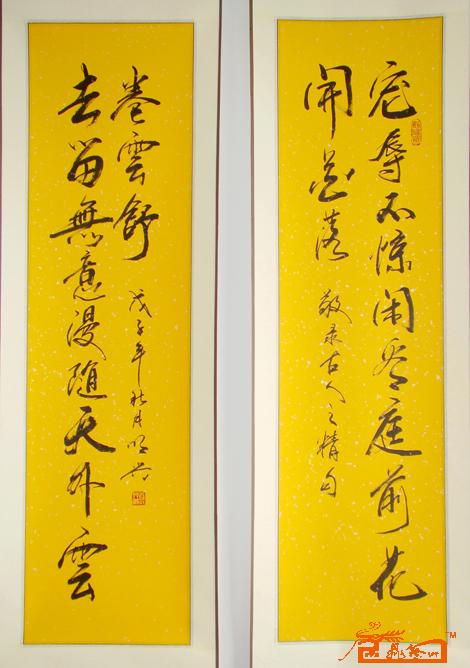 宠辱不惊闲看庭前花
開花落
敬录古人之精句
去留無意漫随天外雲
卷雲舒
戊子年秋月